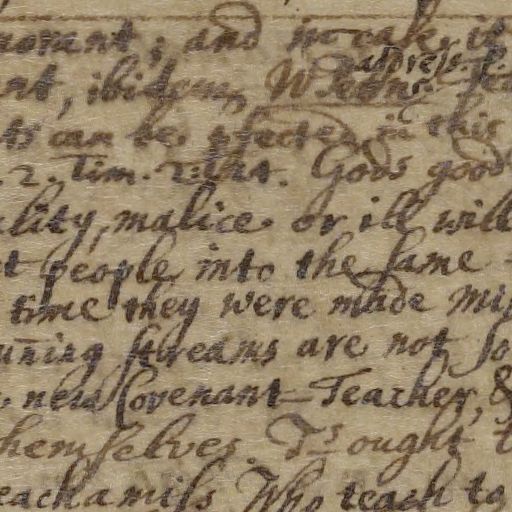 norant; and
address
nt, ibidem,
ts can be effected in this
. 2. Tim. 2.
Gods good
ality, malice or ill will
t people into the same
time they were made Mi
unning streams are not so
new Covenant-Teacher, &
hemselves. Ts ought t
each amiss. Who teach to